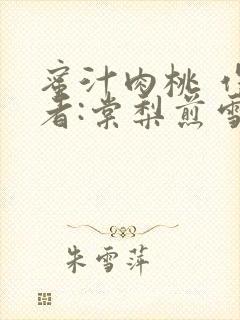 蜜汁肉桃
者:棠梨煎雪
朱雪萍